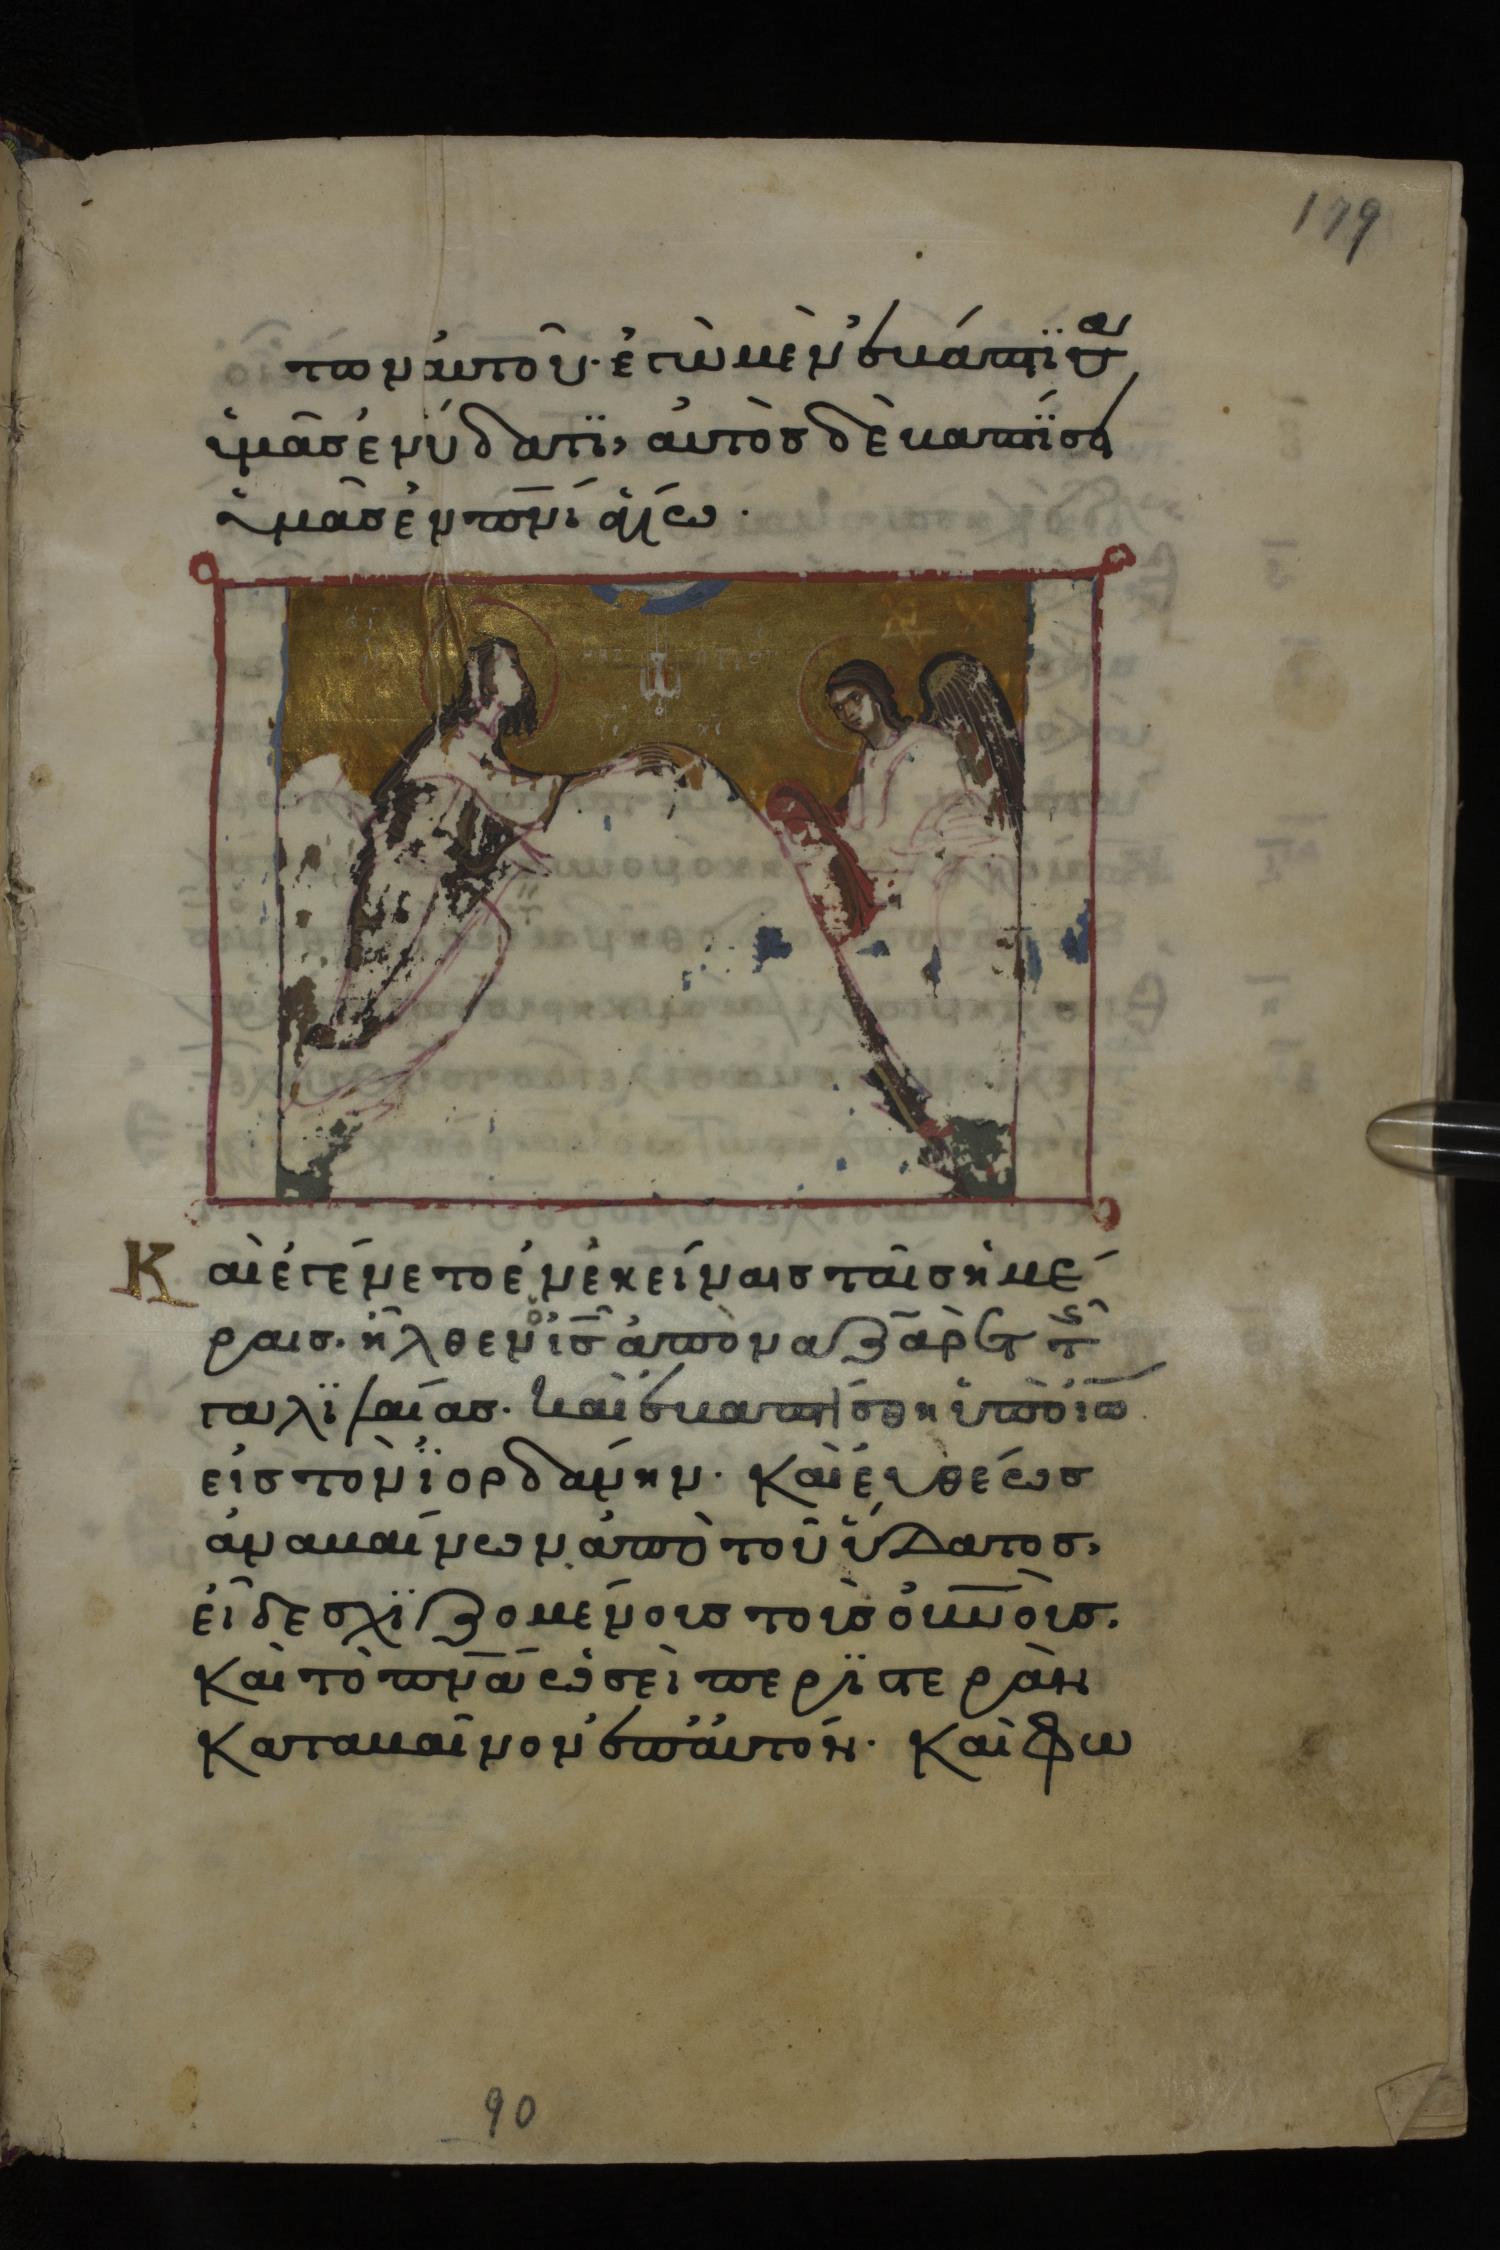 179
των αὐτοῦ· ἐγὼ μὲν ἐβάπτϊσα
ὑμᾶς ἐν ὕδατϊ, αὐτὸς δὲ βαπτΐσει
ὑμᾶς ἐν πνι ἁγίω·
Καὶ ἐγένετο ἐν ἐκείναις ταῖς ἡμέ
ραις· ἦλθεν ὁ ις ἀπὸ ναζαρὲτ τῆς
γαλϊλαίας· καὶ ἐβαπτίσθη ὑπὸ ἰω
εἰς τὸν ἰορδάνην· Καὶ εὐθέως
ἀναβαίνων ἀπὸ τοῦ ὕδατος,
εἶδε σχϊζομένους τοὺς οὐνοὺς·
Καὶ τὸ πνα ὡσεὶ περϊστερὰν
Καταβαῖνον ἐπ αὐτόν· Καὶ φω
90